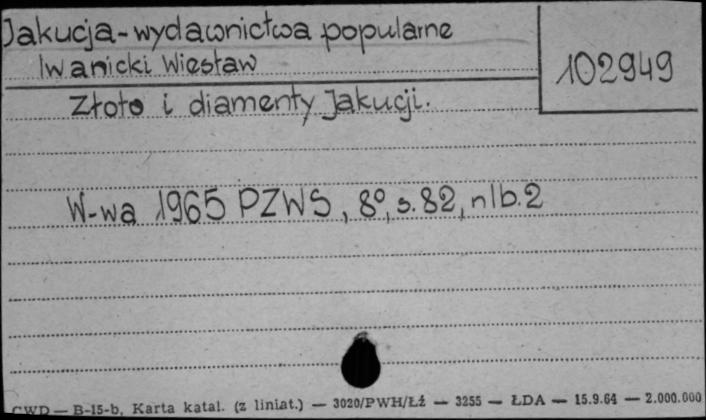 Jakucja-wydawnictwa popularne
Iwanicki Wiesław
102949
Złoto i diamenty Jakucji.
W-wa 1965 PZWS, 8°, s. 82, nlb. 2
CWD — B-15-b, Karta katal. (z liniat.) — 3020/PWH/Łź — 3255 — ŁDA — 15.9.64 — 2.000.000